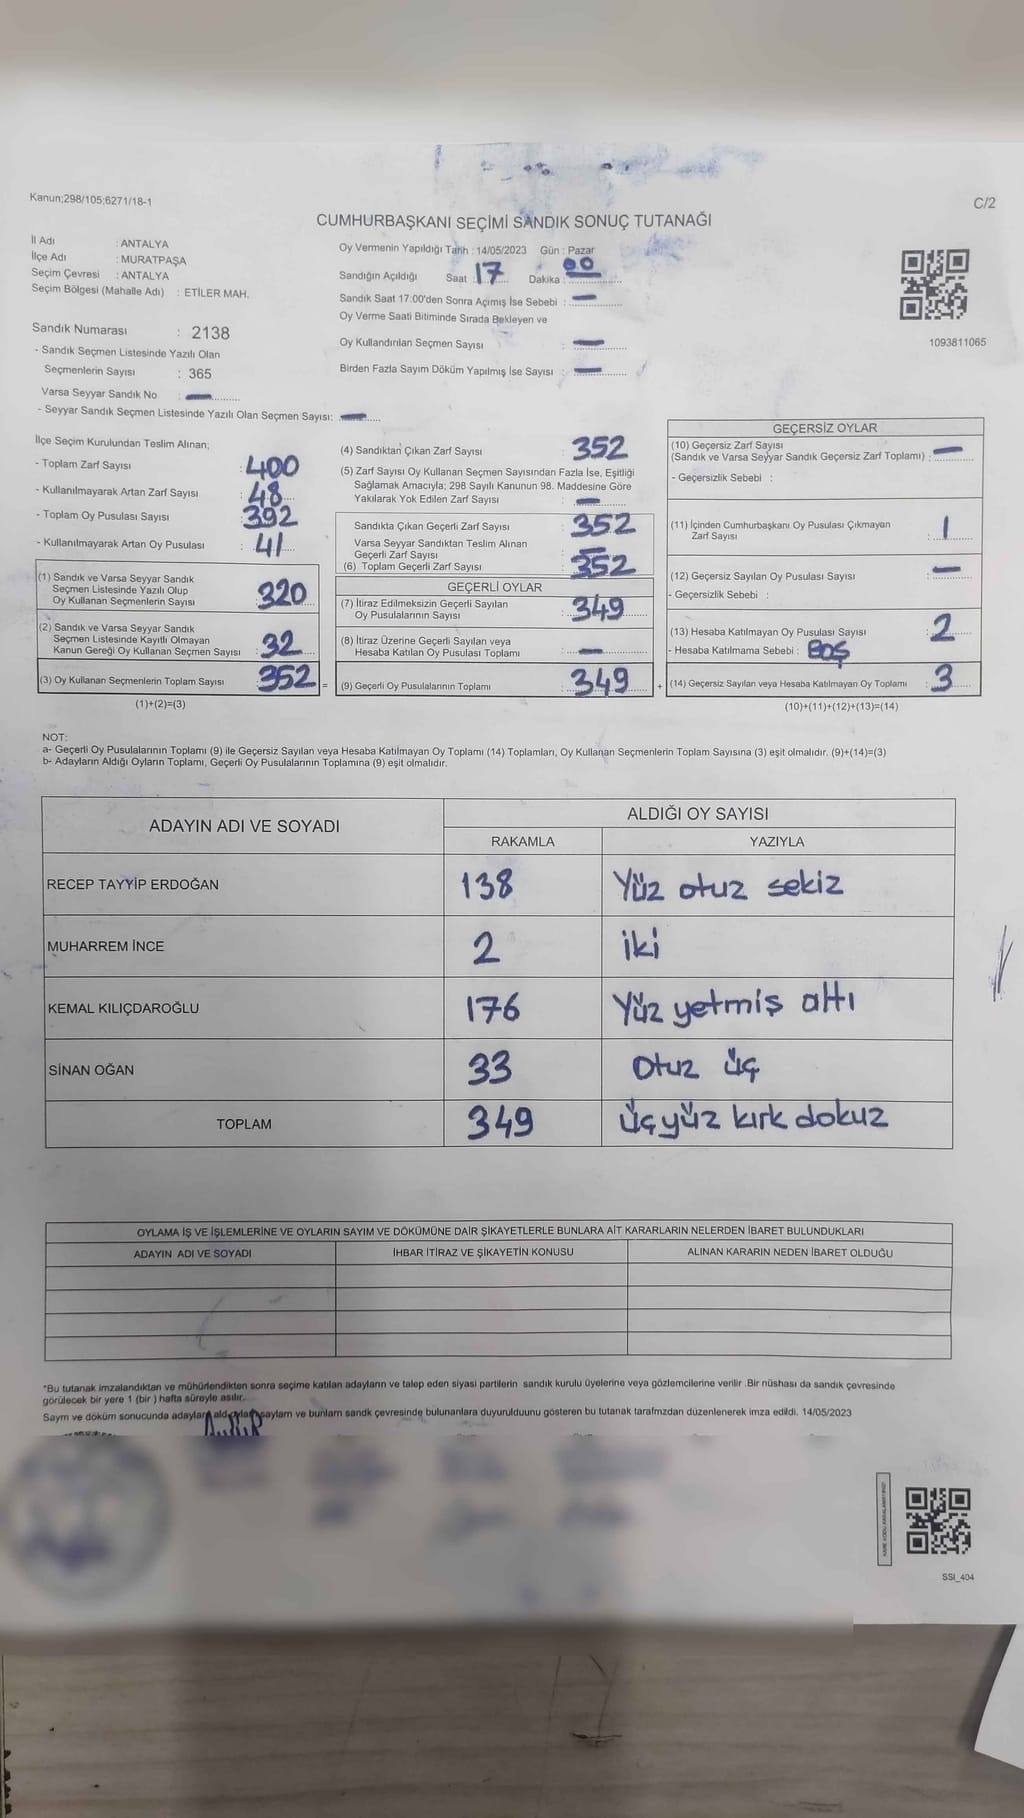 Kanun;298/105;6271/18-1
C/2
CUMHURBAŞKANI SEÇİMİ SANDIK SONUÇ TUTANAĞI
İl Adı : ANTALYA
İlçe Adı : MURATPAŞA
Seçim Çevresi : ANTALYA
Seçim Bölgesi (Mahalle Adı) : ETİLER MAH.
Oy Vermenin Yapıldığı Tarih : 14/05/2023 Gün : Pazar
Sandığın Açıldığı Saat : 17 Dakika : 00
Sandık Saat 17:00'den Sonra Açımış İse Sebebi : —
Oy Verme Saati Bitiminde Sırada Bekleyen ve
Oy Kullandırılan Seçmen Sayısı : —
Birden Fazla Sayım Döküm Yapılmış İse Sayısı : —
1093811065
Sandık Numarası : 2138
- Sandık Seçmen Listesinde Yazılı Olan
Seçmenlerin Sayısı : 365
Varsa Seyyar Sandık No : —
- Seyyar Sandık Seçmen Listesinde Yazılı Olan Seçmen Sayısı: —
İlçe Seçim Kurulundan Teslim Alınan;
- Toplam Zarf Sayısı : 400
- Kullanılmayarak Artan Zarf Sayısı : 48
- Toplam Oy Pusulası Sayısı : 392
- Kullanılmayarak Artan Oy Pusulası : 41
(1) Sandık ve Varsa Seyyar Sandık
Seçmen Listesinde Yazılı Olup
Oy Kullanan Seçmenlerin Sayısı : 320
(2) Sandık ve Varsa Seyyar Sandık
Seçmen Listesinde Kayıtlı Olmayan
Kanun Gereği Oy Kullanan Seçmen Sayısı : 32
(3) Oy Kullanan Seçmenlerin Toplam Sayısı : 352 =
(1)+(2)=(3)
(4) Sandıktan Çıkan Zarf Sayısı : 352
(5) Zarf Sayısı Oy Kullanan Seçmen Sayısından Fazla İse, Eşitliği
Sağlamak Amacıyla; 298 Sayılı Kanunun 98. Maddesine Göre
Yakılarak Yok Edilen Zarf Sayısı : —
Sandıkta Çıkan Geçerli Zarf Sayısı : 352
Varsa Seyyar Sandıktan Teslim Alınan
Geçerli Zarf Sayısı : —
(6) Toplam Geçerli Zarf Sayısı : 352
GEÇERLİ OYLAR
(7) İtiraz Edilmeksizin Geçerli Sayılan
Oy Pusulalarının Sayısı : 349
(8) İtiraz Üzerine Geçerli Sayılan veya
Hesaba Katılan Oy Pusulası Toplamı : —
(9) Geçerli Oy Pusulalarının Toplamı : 349 +
GEÇERSİZ OYLAR
(10) Geçersiz Zarf Sayısı
(Sandık ve Varsa Seyyar Sandık Geçersiz Zarf Toplamı) : —
- Geçersizlik Sebebi :
(11) İçinden Cumhurbaşkanı Oy Pusulası Çıkmayan
Zarf Sayısı : 1
(12) Geçersiz Sayılan Oy Pusulası Sayısı : —
- Geçersizlik Sebebi :
(13) Hesaba Katılmayan Oy Pusulası Sayısı : 2
- Hesaba Katılmama Sebebi : BOŞ
(14) Geçersiz Sayılan veya Hesaba Katılmayan Oy Toplamı : 3
(10)+(11)+(12)+(13)=(14)
NOT:
a- Geçerli Oy Pusulalarının Toplamı (9) ile Geçersiz Sayılan veya Hesaba Katılmayan Oy Toplamı (14) Toplamları, Oy Kullanan Seçmenlerin Toplam Sayısına (3) eşit olmalıdır. (9)+(14)=(3)
b- Adayların Aldığı Oyların Toplamı, Geçerli Oy Pusulalarının Toplamına (9) eşit olmalıdır.
ADAYIN ADI VE SOYADI
ALDIĞI OY SAYISI
RAKAMLA YAZIYLA
RECEP TAYYİP ERDOĞAN 138 Yüz otuz sekiz
MUHARREM İNCE 2 iki
KEMAL KILIÇDAROĞLU 176 Yüz yetmiş altı
SİNAN OĞAN 33 Otuz üç
TOPLAM 349 üçyüz kırk dokuz
OYLAMA İŞ VE İŞLEMLERİNE VE OYLARIN SAYIM VE DÖKÜMÜNE DAİR ŞİKAYETLERLE BUNLARA AİT KARARLARIN NELERDEN İBARET BULUNDUKLARI
ADAYIN ADI VE SOYADI İHBAR İTİRAZ VE ŞİKAYETİN KONUSU ALINAN KARARIN NEDEN İBARET OLDUĞU
*Bu tutanak imzalandıktan ve mühürlendikten sonra seçime katılan adayların ve talep eden siyasi partilerin sandık kurulu üyelerine veya gözlemcilerine verilir .Bir nüshası da sandık çevresinde
görülecek bir yere 1 (bir ) hafta süreyle asılır.
Sayım ve döküm sonucunda adayların saylam ve bunlam sandk çevresinde bulunanlara duyurulduunu gösteren bu tutanak tarafmzdan düzenlenerek imza edildi. 14/05/2023
SSI_404